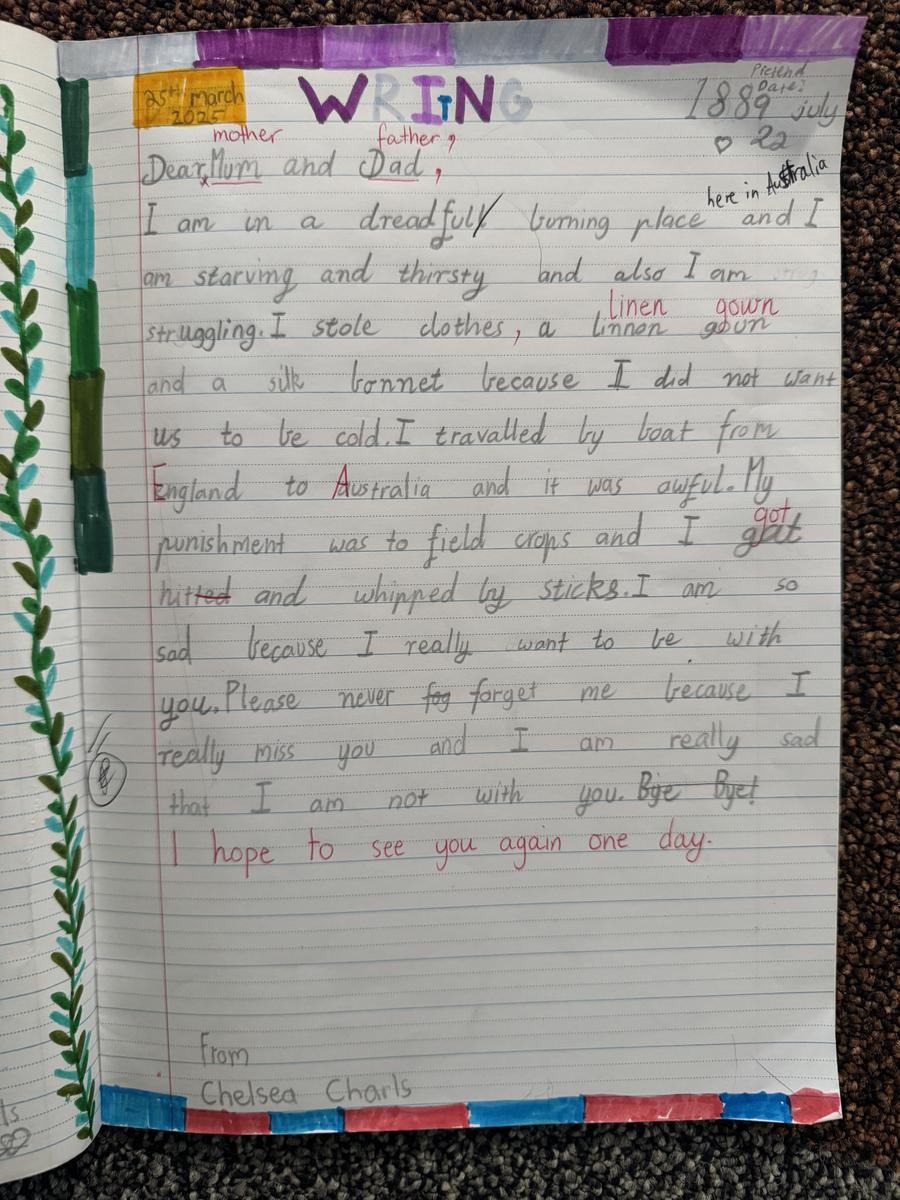 25th March
2025
WRITING
Pretend
Date:
1889 july
22
mother father,
Dear Mum and Dad,
here in Australia
I am in a dreadfull burning place and I
am starving and thirsty and also I am
linen gown
struggling. I stole clothes, a linnen goun
and a silk bonnet because I did not want
us to be cold. I travalled by boat from
England to Australia and it was awful. My
got
punishment was to field crops and I
hitted and whipped by sticks. I am so
sad because I really want to be with
you. Please never fog forget me because I
really miss you and I am really sad
that I am not with you. Bye Bye!
I hope to see you again one day.
From
Chelsea Charls